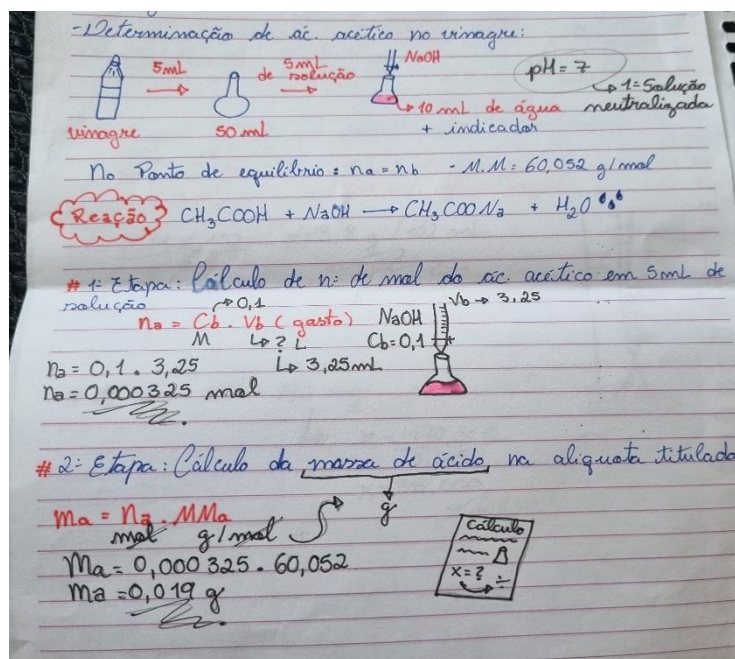 -Determinação de ác. acético no vinagre:
5mL
de
5mL solução
NaOH
pH = 7
↳ 1= Solução neutralizada
vinagre
50 mL
↳ 10 mL de água
+ indicador
No Ponto de equilíbrio: na = nb - M.M: 60,052 g/mol
Reação CH₃COOH + NaOH → CH₃COONa + H₂O
# 1= Etapa: Cálculo de n= de mol do ác. acético em 5mL de
solução
↱ 0,1
na = Cb . Vb (gasto)
M ↳ ? L
↳ 3,25mL
NaOH
Cb=0,1
Vb → 3,25
na = 0,1 . 3,25
na = 0,000325 mol
# 2= Etapa: Cálculo da massa de ácido na aliquota titulada
g
Ma = Na . MMa
mol g/mol
Ma = 0,000325 . 60,052
Ma = 0,019 g
Cálculo
x = ?
÷